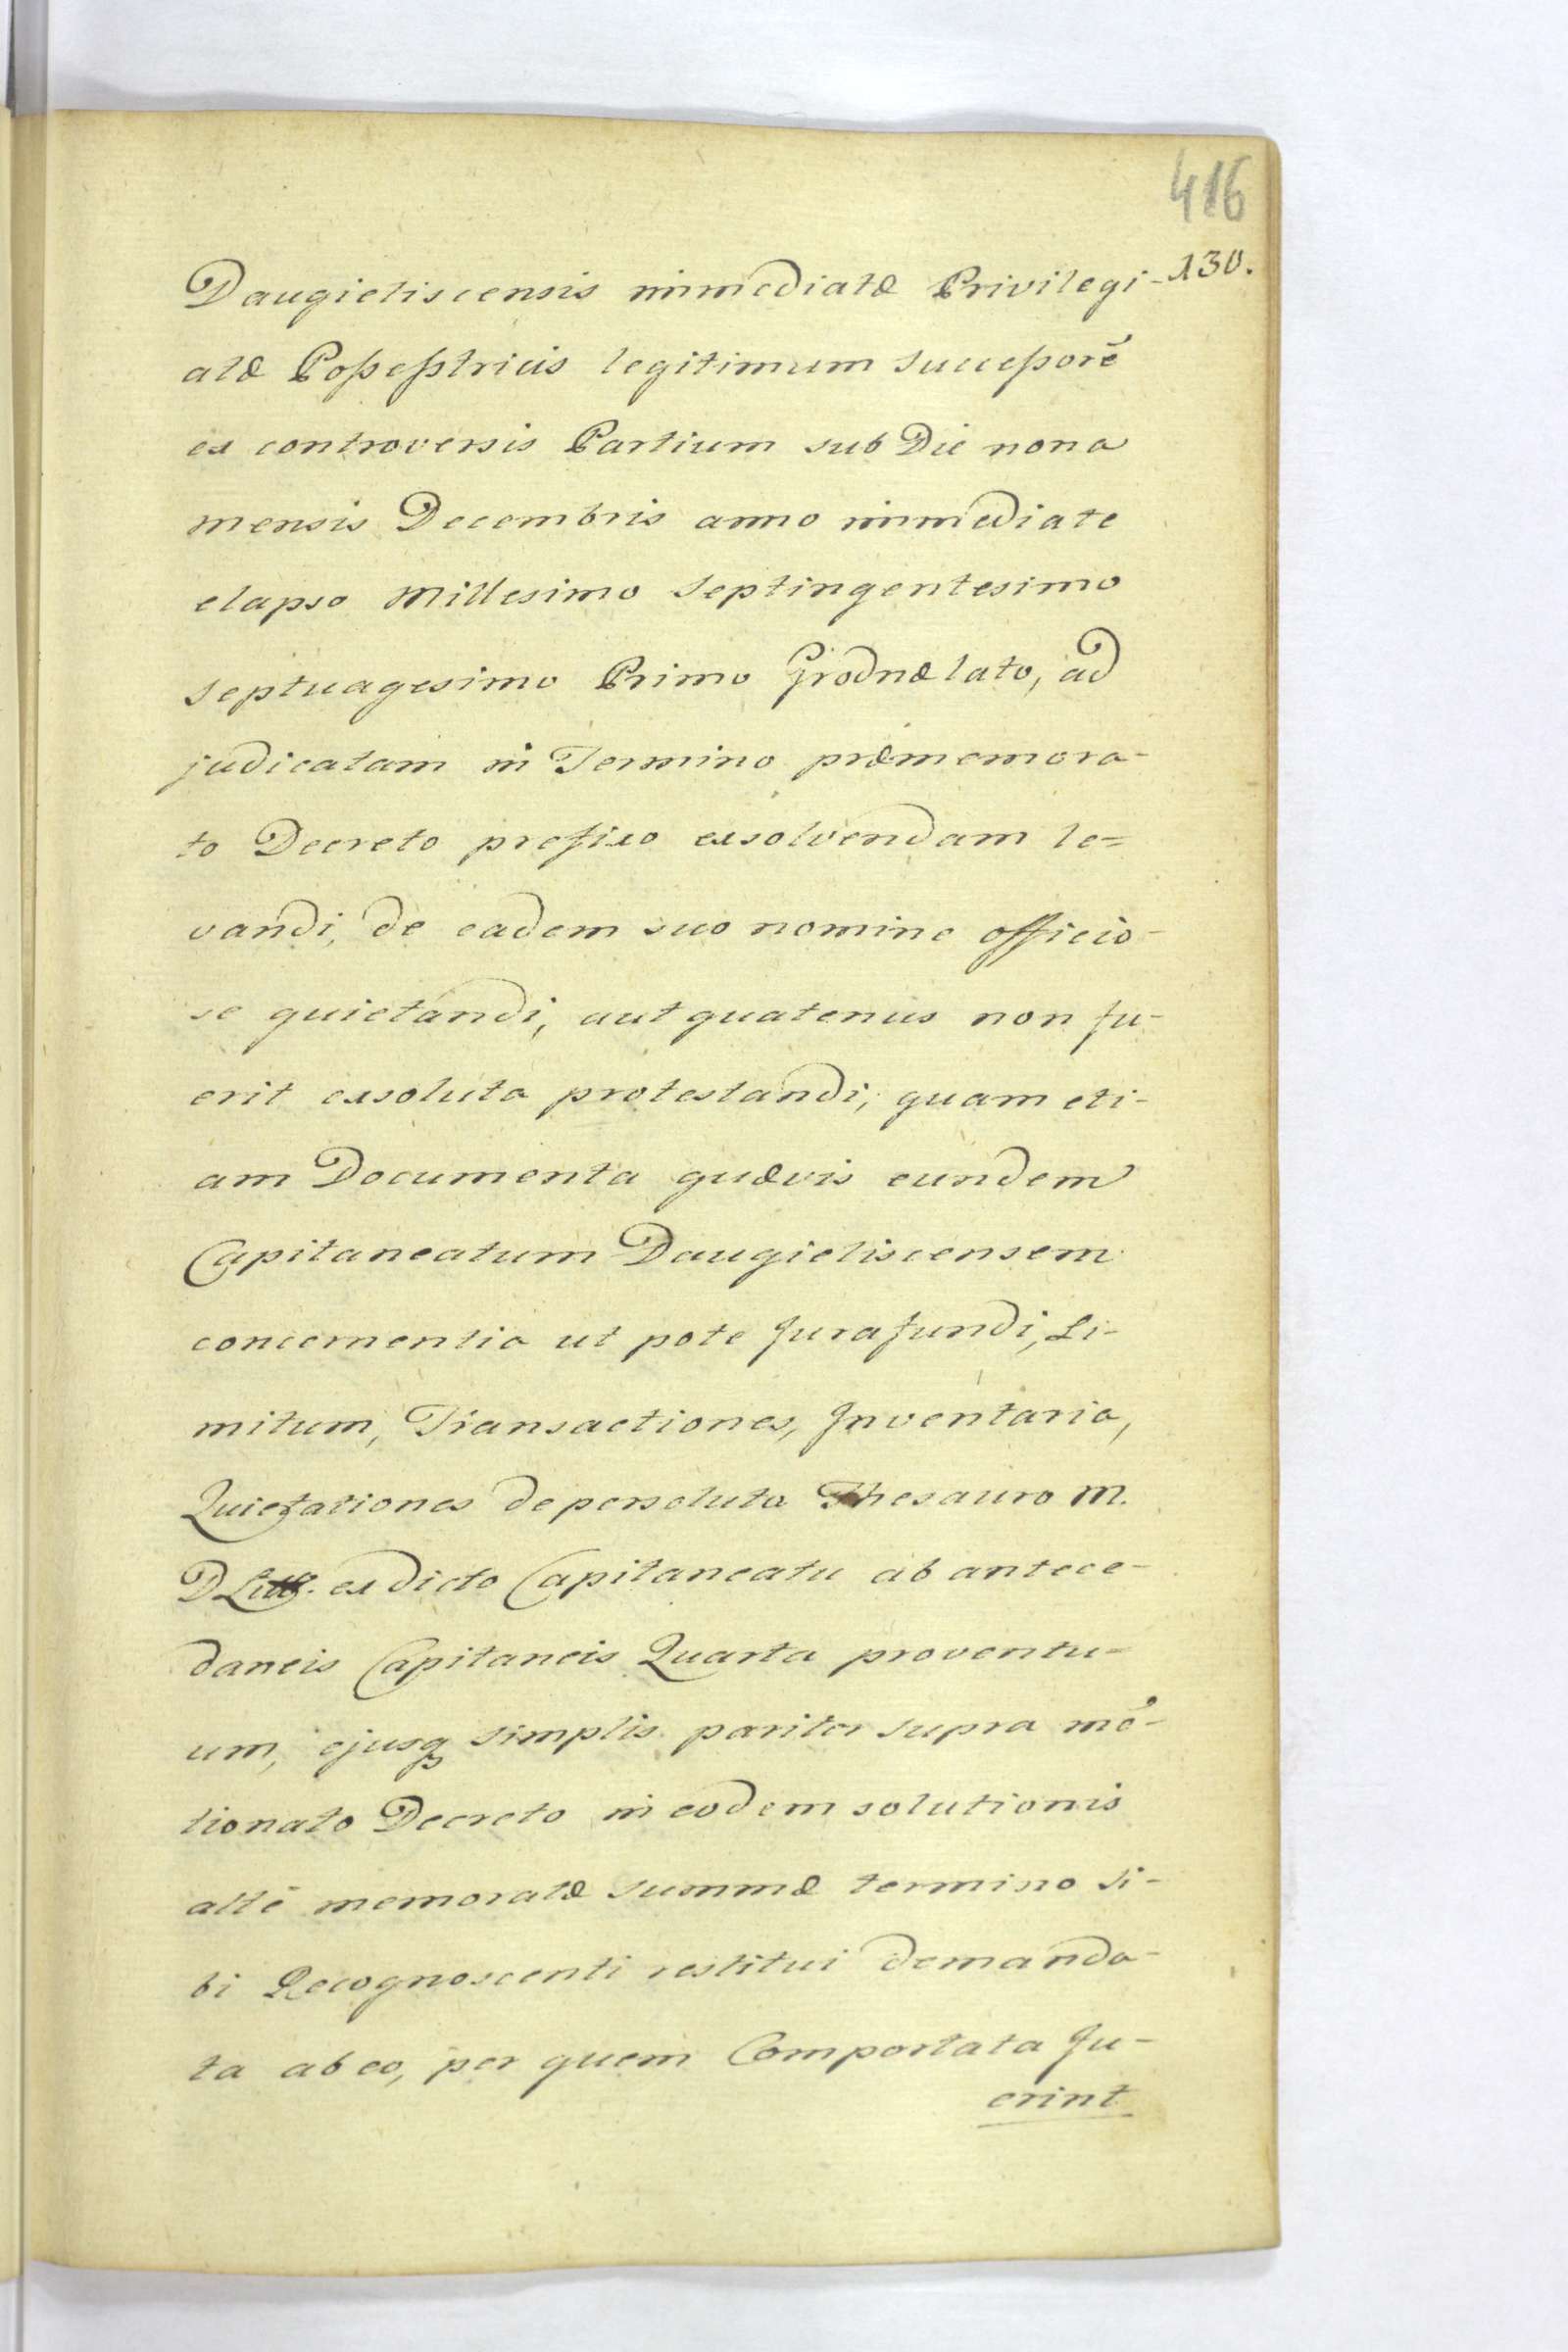 416
130.
Daugieliscensis immediatæ Privilegi-
atæ Poßeßtricis legitimum succeßorē
ex controversis Partium sub Die nona
mensis Decembris anno immediate
elapso Millesimo Septingentesimo
septuagesimo Primo Grodnæ lato, ad
judicatam in Termino præmemora-
to Decreto prefixo exsolvendam le=
vandi, de eadem suo nomine officio-
se quietandi, aut quatenus non fu-
erit exsoluta protestandi; quam eti-
am Documenta quævis eundem
Capitaneatum Daugieliscensem
concernentia ut pote Jura fundi, Li-
mitum, Transactiones, Inventaria,
Quietationes de persoluta Thesauro M.
D Litt. ex dicto Capitaneatu ab antece-
daneis Capitaneis Quarta proventu=
um, ejusq simplis pariter supra mē-
tionato Decreto in eodem solutionis
altè memoratæ summæ termino si-
bi Recognoscenti restitui demanda-
ta ab eo, per quem Comportata fu-
erint